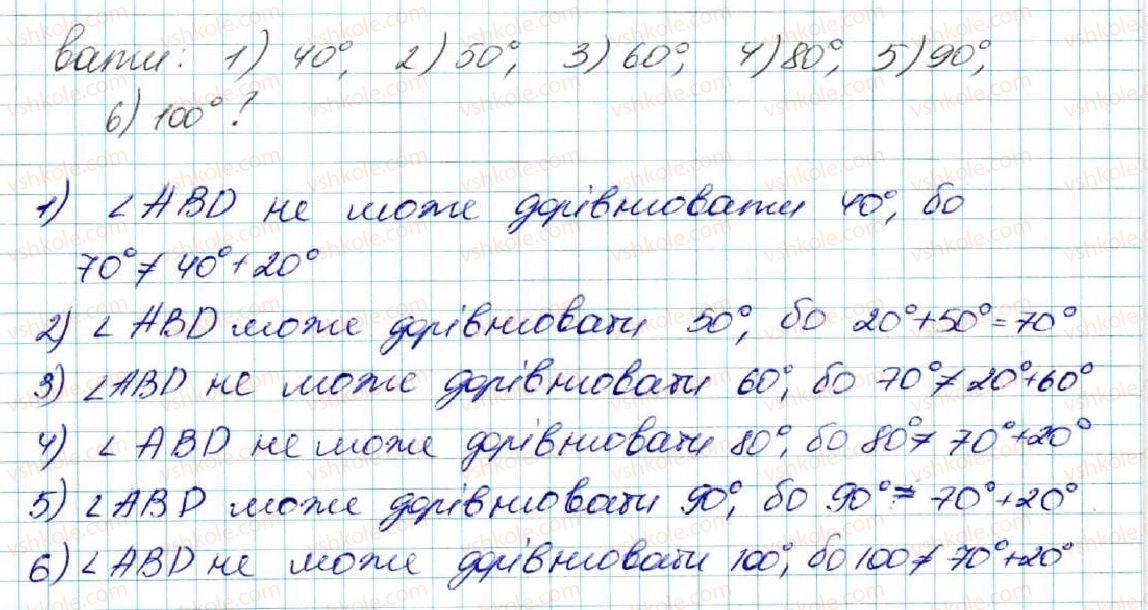 вати: 1) 40°, 2) 50°; 3) 60°; 4) 80°, 5) 90°;
6) 100°?
1) ∠ABD не може дорівнювати 40°, бо
70° ≠ 40° + 20°
2) ∠ABD може дорівнювати 50°, бо 20° + 50° = 70°
3) ∠ABD не може дорівнювати 60°, бо 70° ≠ 20° + 60°
4) ∠ABD не може дорівнювати 80°, бо 80° ≠ 70° + 20°
5) ∠ABD може дорівнювати 90°, бо 90° = 70° + 20°
6) ∠ABD не може дорівнювати 100°, бо 100 ≠ 70° + 20°
vshkole.com